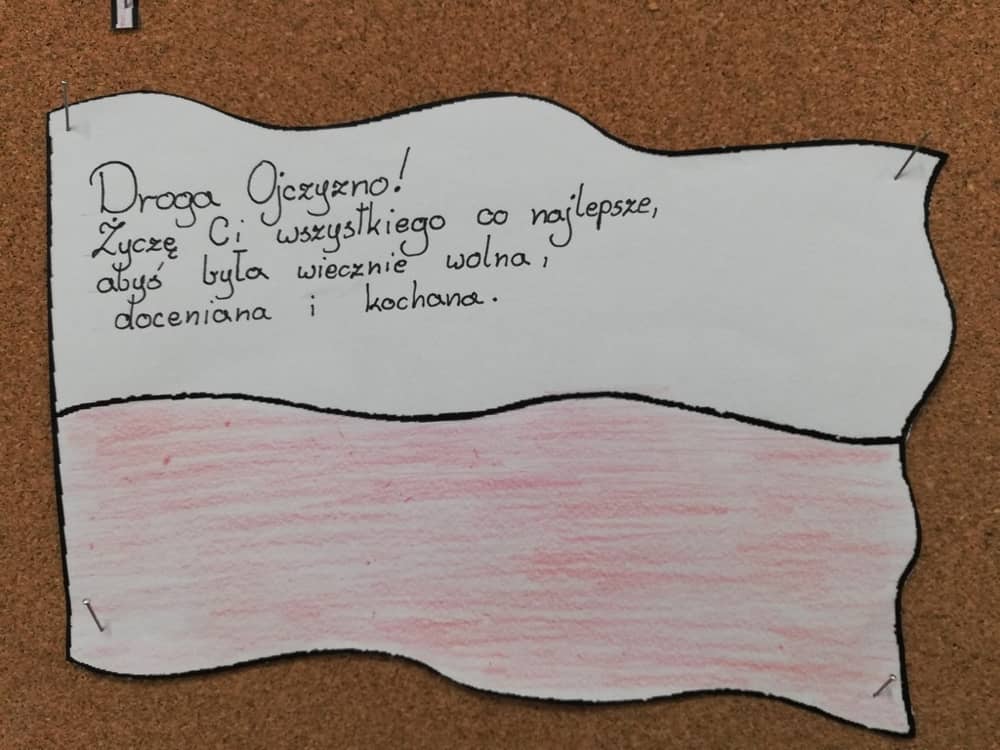 Droga Ojczyzno!
Życzę Ci wszystkiego co najlepsze,
abyś była wiecznie wolna,
doceniana i kochana.